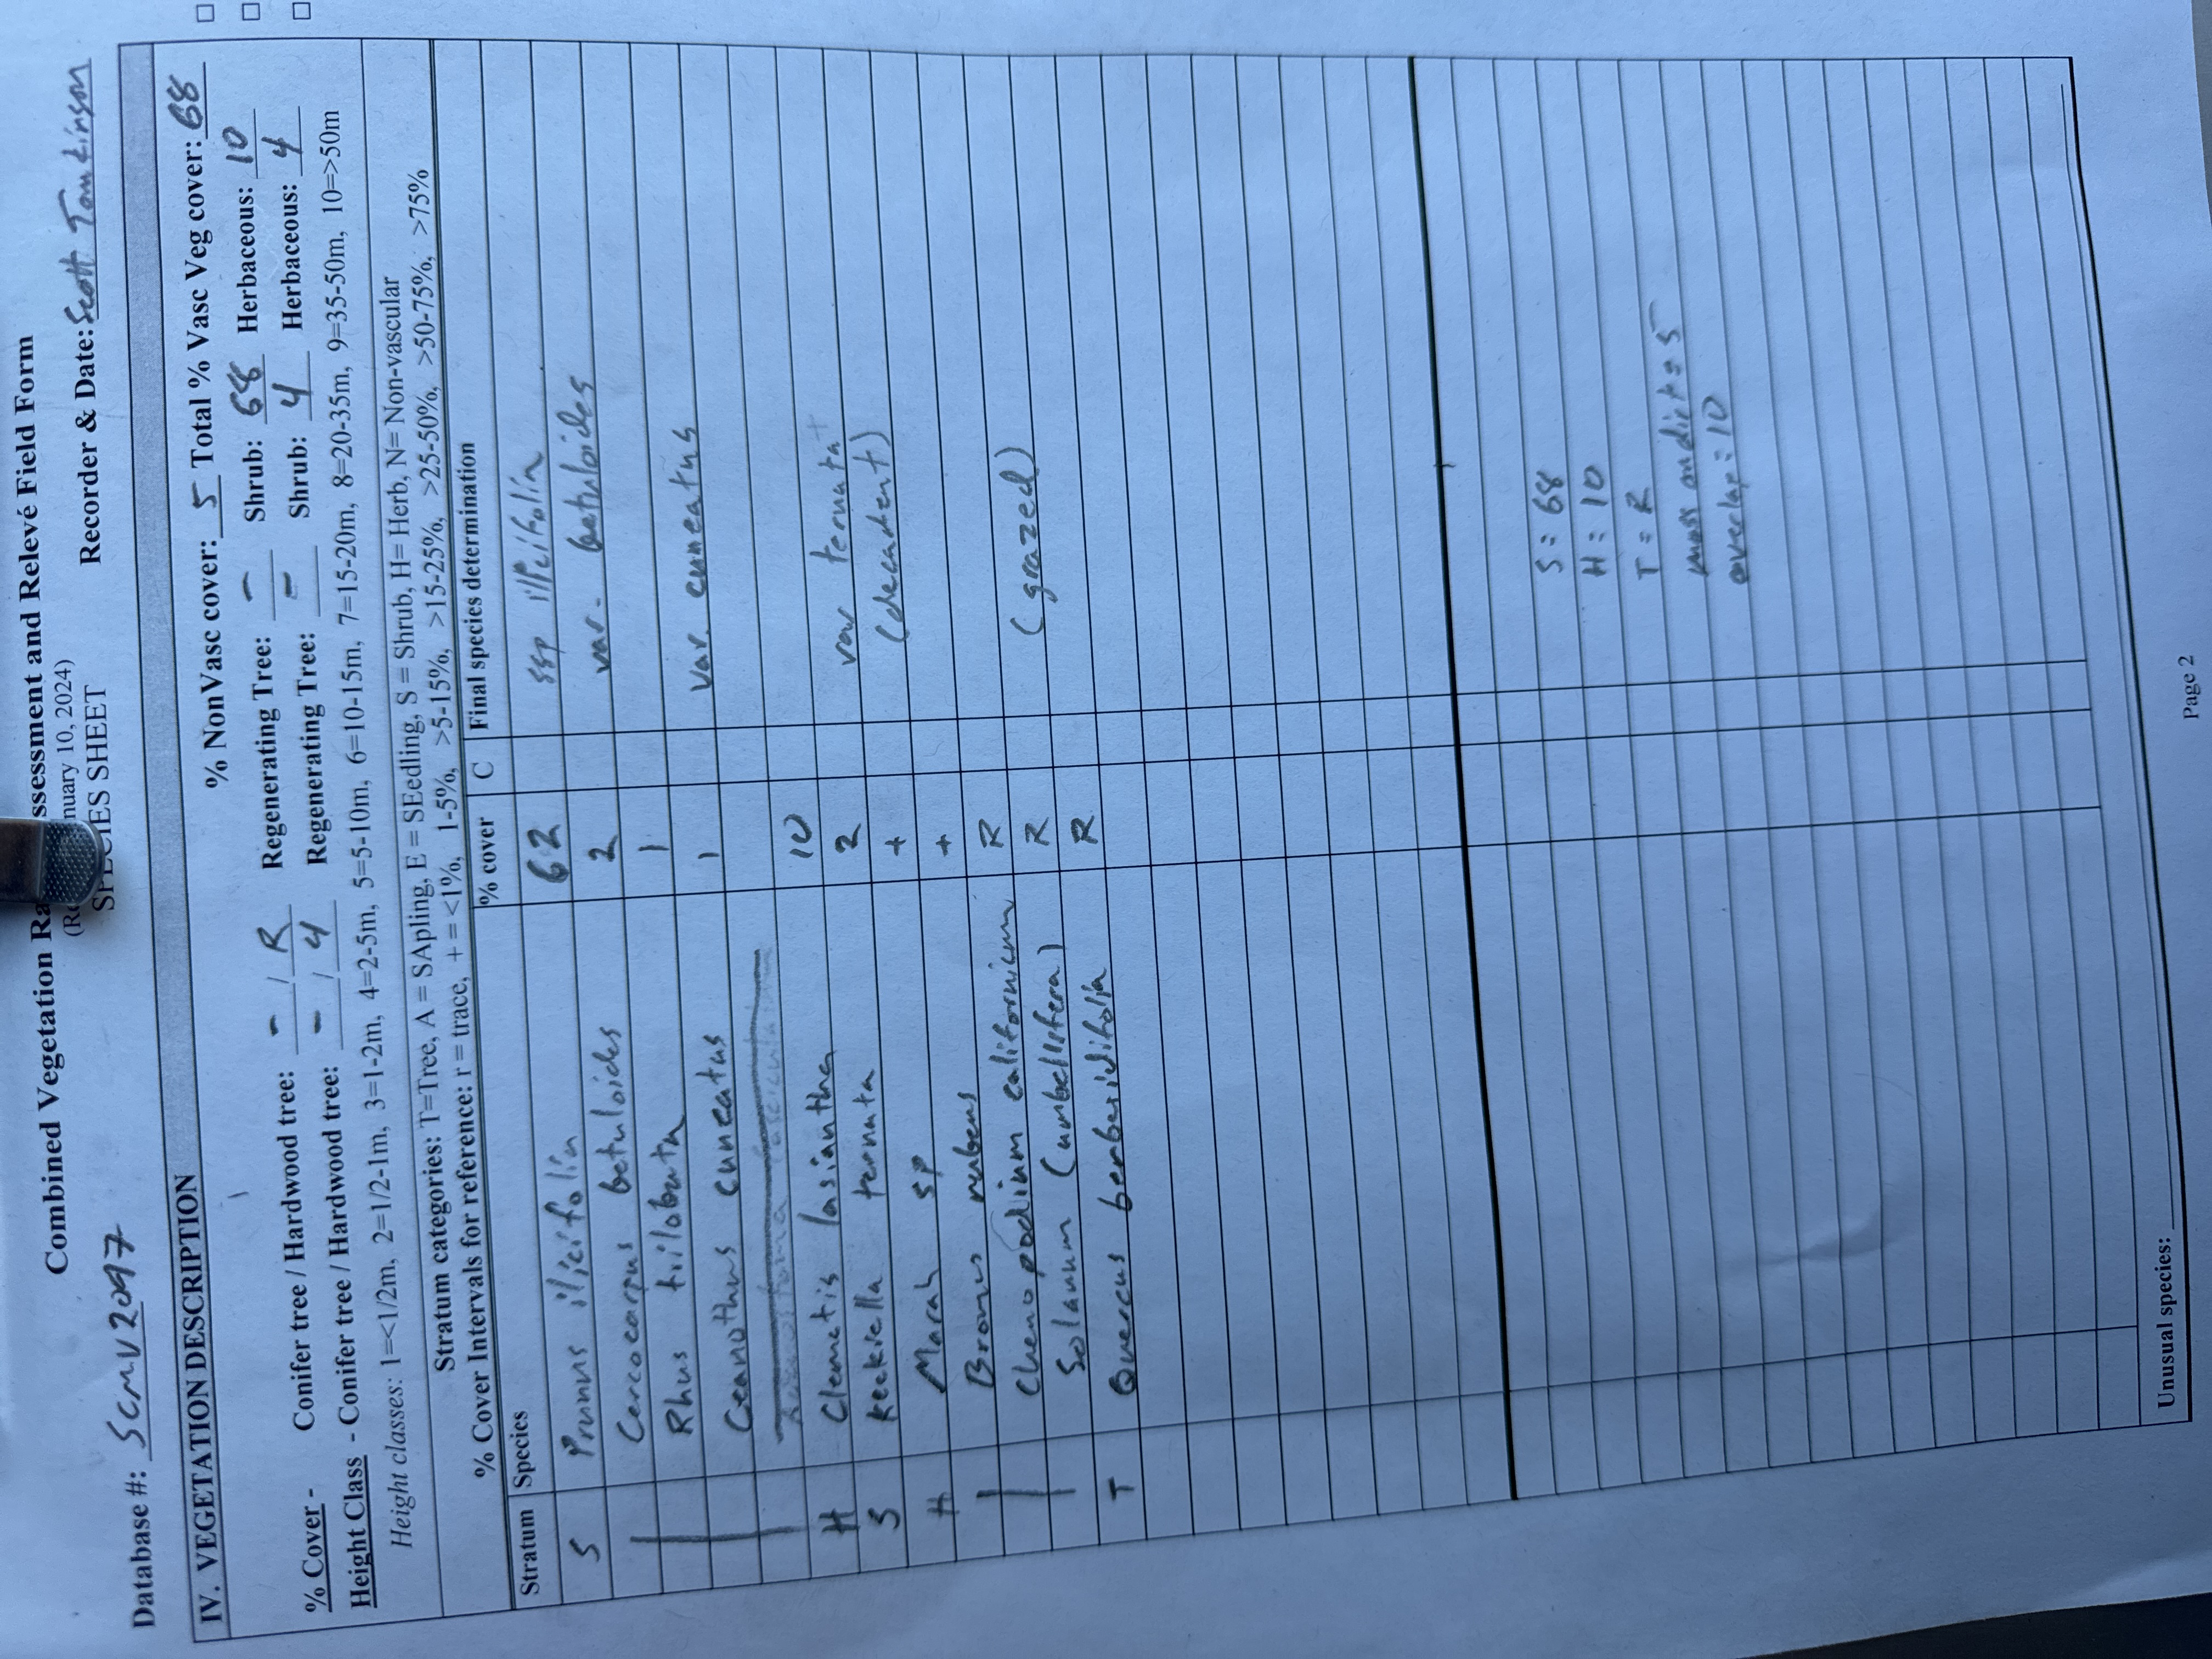 Combined Vegetation Ra ssessment and Relevé Field Form
(Re nuary 10, 2024)
SPECIES SHEET
Database #: SCMV2097 Recorder & Date: Scott Tomlinson
IV. VEGETATION DESCRIPTION
% NonVasc cover: 5 Total % Vasc Veg cover: 68
% Cover - Conifer tree / Hardwood tree: - / R Regenerating Tree: - Shrub: 68 Herbaceous: 10
Height Class - Conifer tree / Hardwood tree: - / 4 Regenerating Tree: - Shrub: 4 Herbaceous: 4
Height classes: 1=<1/2m, 2=1/2-1m, 3=1-2m, 4=2-5m, 5=5-10m, 6=10-15m, 7=15-20m, 8=20-35m, 9=35-50m, 10=>50m
Stratum categories: T=Tree, A = SApling, E = SEedling, S = Shrub, H= Herb, N= Non-vascular
% Cover Intervals for reference: r = trace, + = <1%, 1-5%, >5-15%, >15-25%, >25-50%, >50-75%, >75%
Stratum Species % cover C Final species determination
S Prunus ilicifolia 62 ssp ilicifolia
Cercocarpus betuloides 2 var. betuloides
Rhus trilobata 1
Ceanothus cuneatus 1 var. cuneatus
H Clematis lasiantha 10
S Keckiella ternata 2 var ternata
H Marah sp + (decadent)
Bromus rubens +
Chenopodium californicum R
Solanum (umbellifera) R (grazed)
T Quercus berberidifolia R
S = 68
H = 10
T = R
moss and
overlap = 10
Unusual species:
Page 2